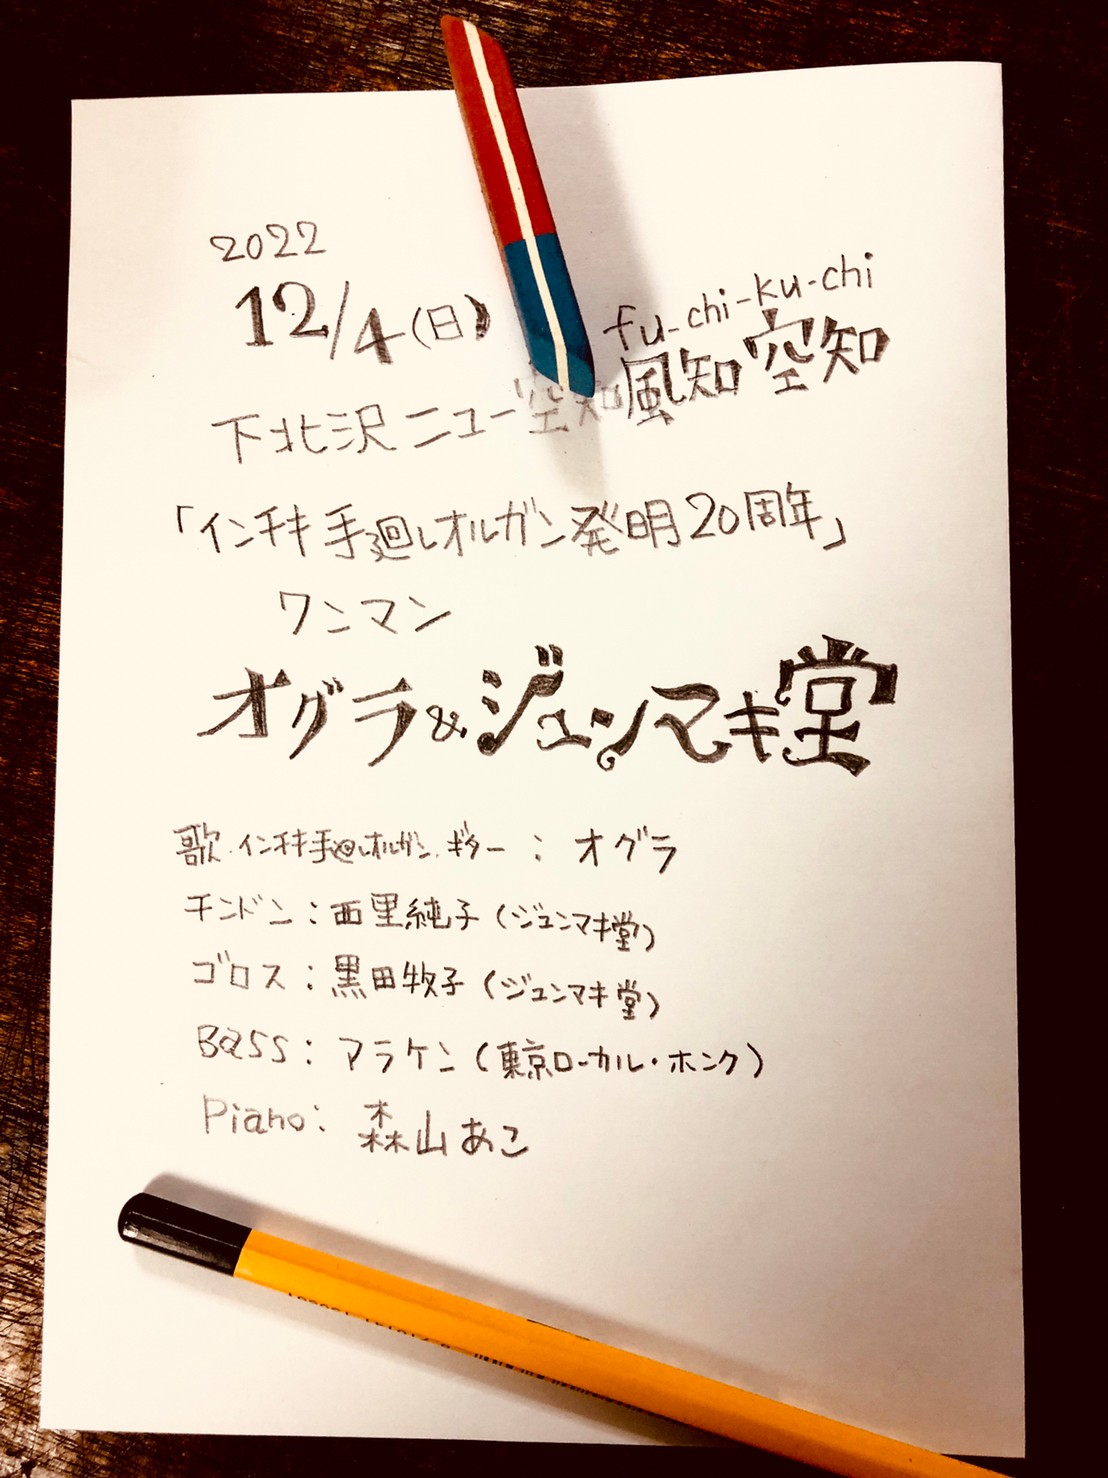 2022
12/4(日)
fu-chi-ku-chi
下北沢 ニュー空知風知空知
「インチキ手廻しオルガン発明20周年」
ワンマン
オグラ&ジュンマキ堂
歌.インチキ手回しオルガン.ギター:オグラ
チンドン:西里純子(ジュンマキ堂)
ゴロス:黒田牧子(ジュンマキ堂)
Bass:アラケン(東京ローカル・ホンク)
Piano:森山あこ